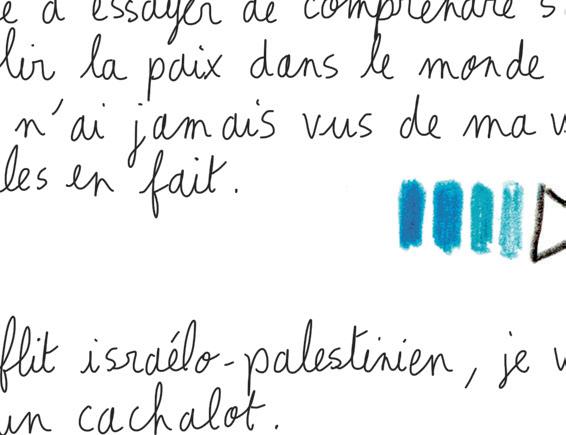 e à essayer de comprendre s
lir la paix dans le monde
n'ai jamais vus de ma v
les en fait.
flit israélo-palestinien, je v
un cachalot.